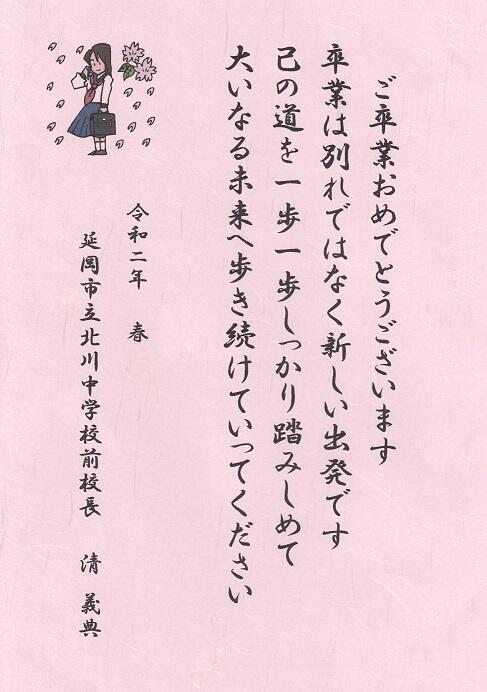 ご卒業おめでとうございます
卒業は別れではなく新しい出発です
己の道を一歩一歩しっかり踏みしめて
大いなる未来へ歩き続けていってください
令和二年　春
延岡市立北川中学校前校長　清　義典